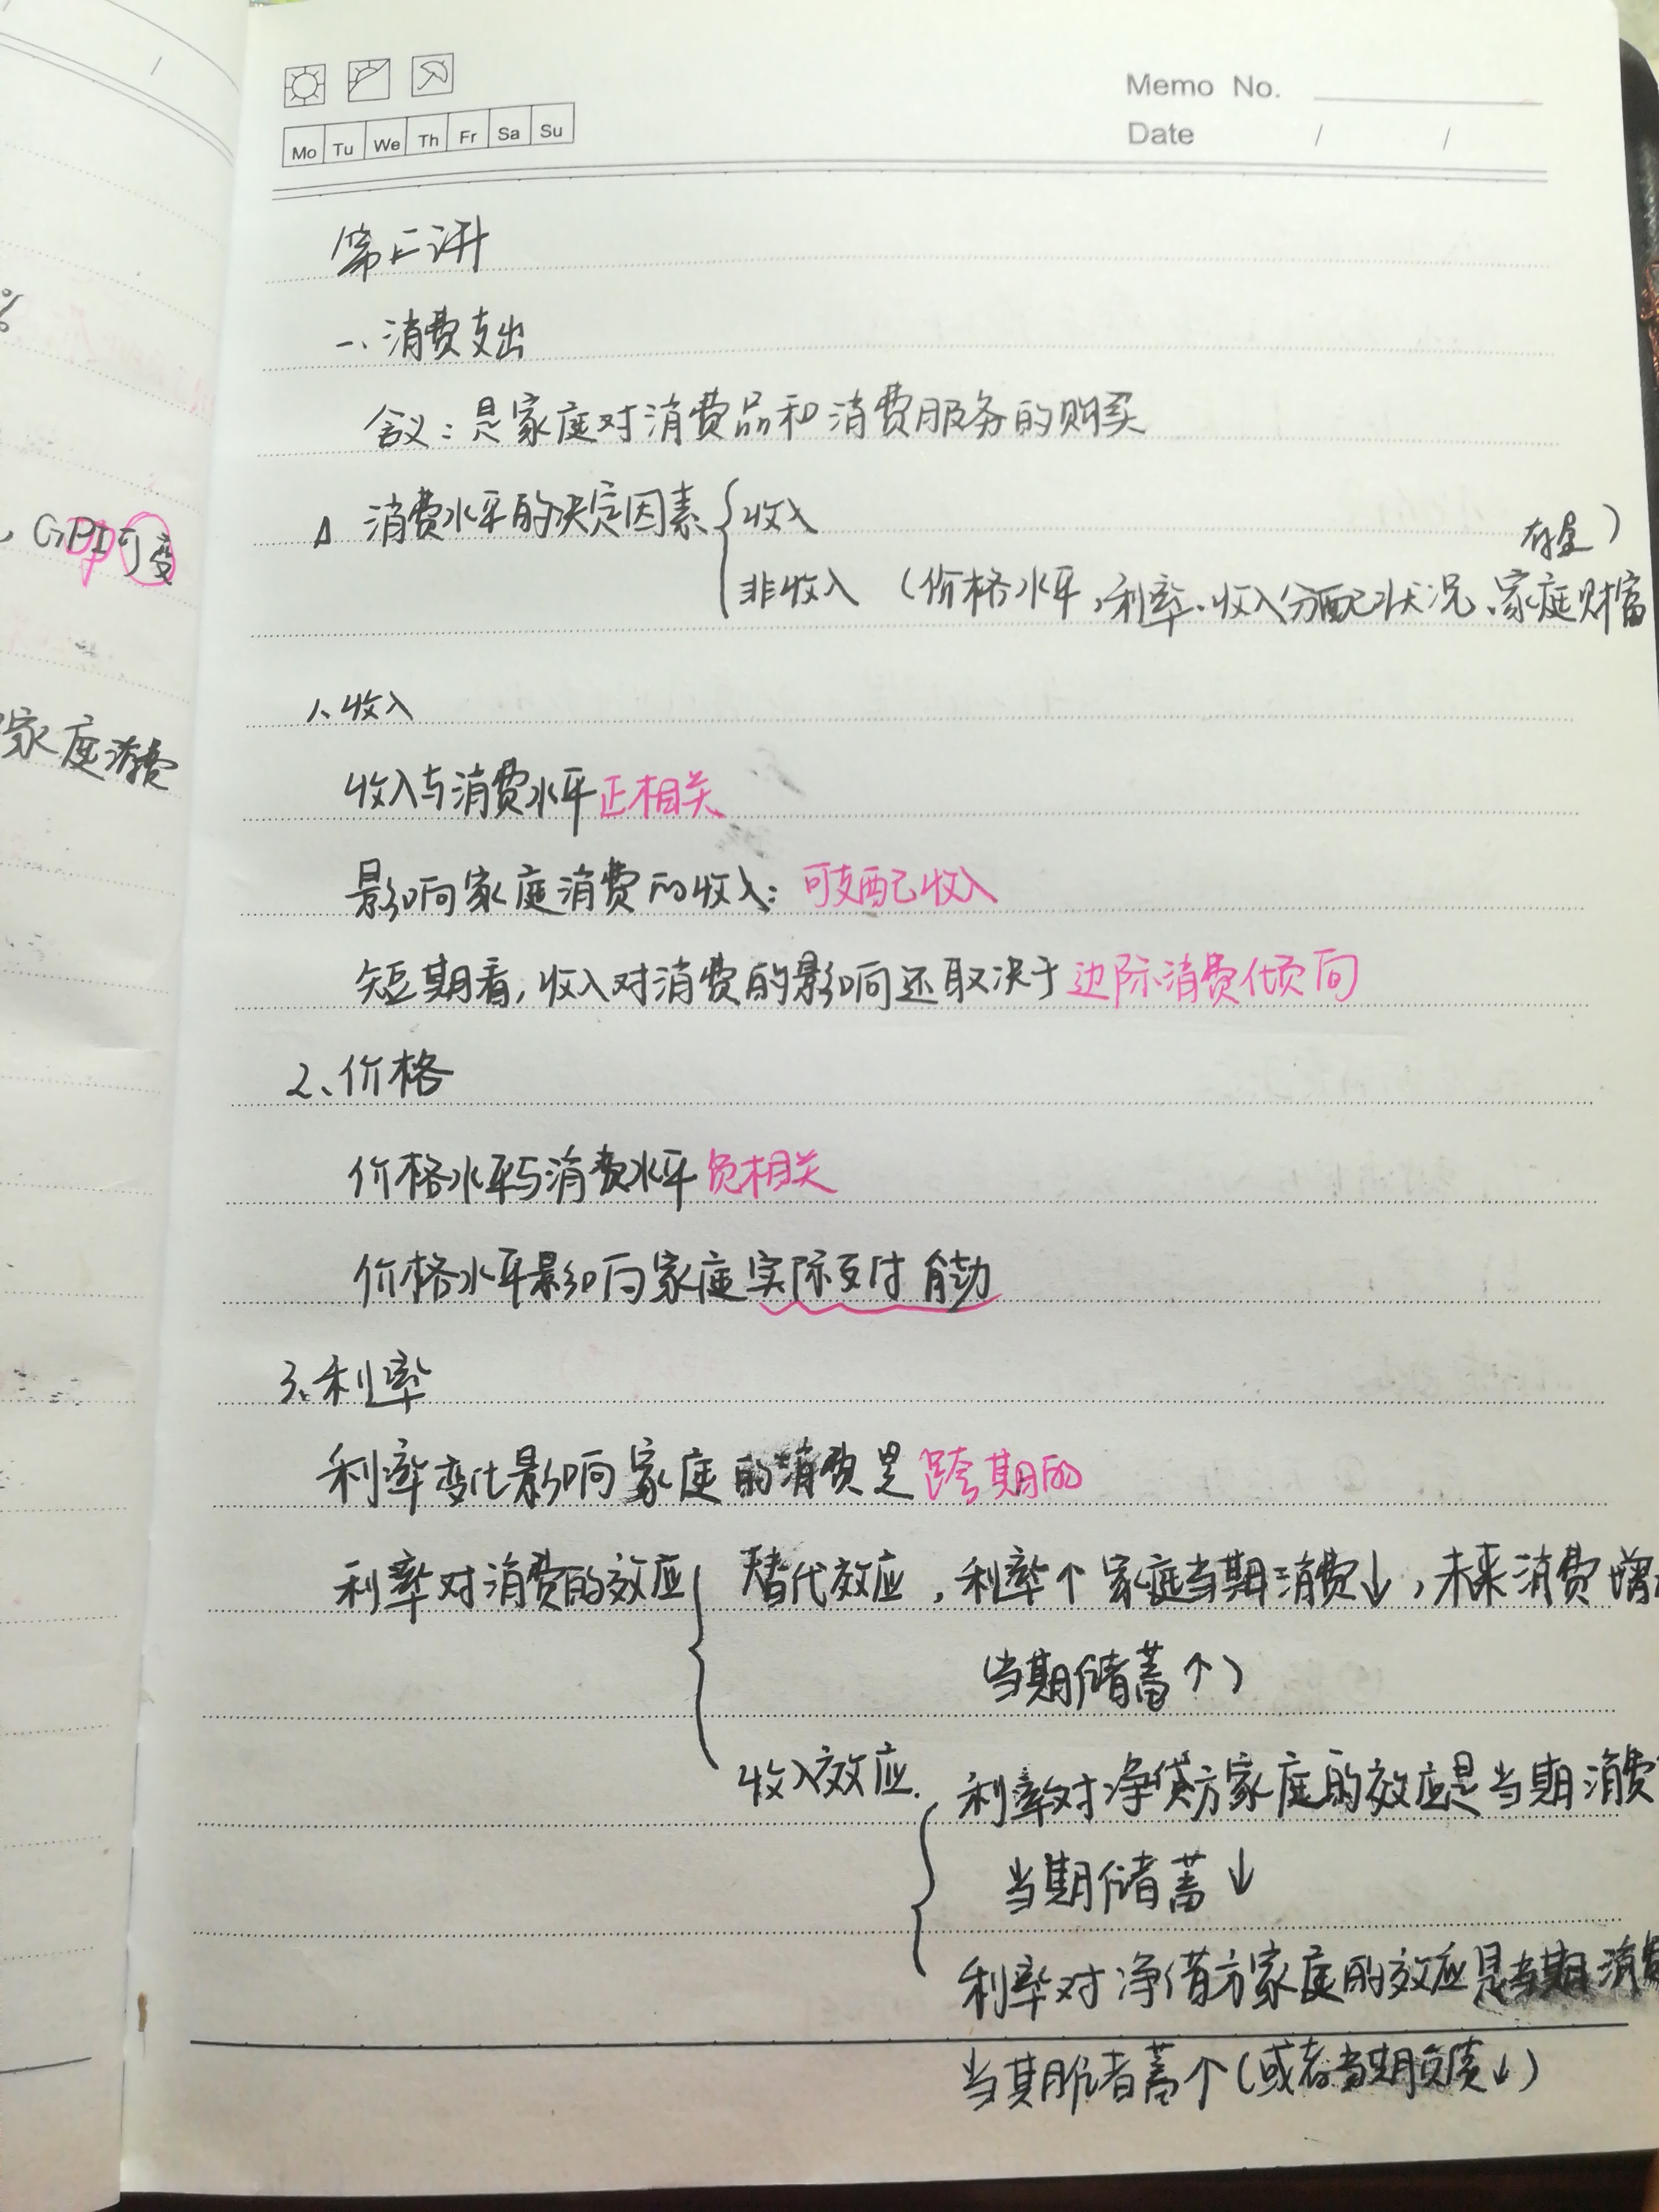 Memo No.
Mo Tu We Th Fr Sa Su
Date / /
第二讲
一、消费支出
含义：是家庭对消费品和消费服务的购买
Δ 消费水平的决定因素 { 收入
存量）
非收入（价格水平，利率、收入分配状况、家庭财富
1、收入
收入与消费水平正相关
影响家庭消费的收入：可支配收入
短期看，收入对消费的影响还取决于边际消费倾向
2、价格
价格水平与消费水平负相关
价格水平影响家庭实际支付能力
3、利率
利率变化影响家庭的消费是跨期的
利率对消费的效应 { 替代效应，利率↑家庭当期消费↓，未来消费增
（当期储蓄↑）
收入效应. { 利率对净贷方家庭的效应是当期消费
当期储蓄↓
利率对净借方家庭的效应是当期消费
当期储蓄↑（或者当期负债↓）
%
，GDP可变
家庭消费